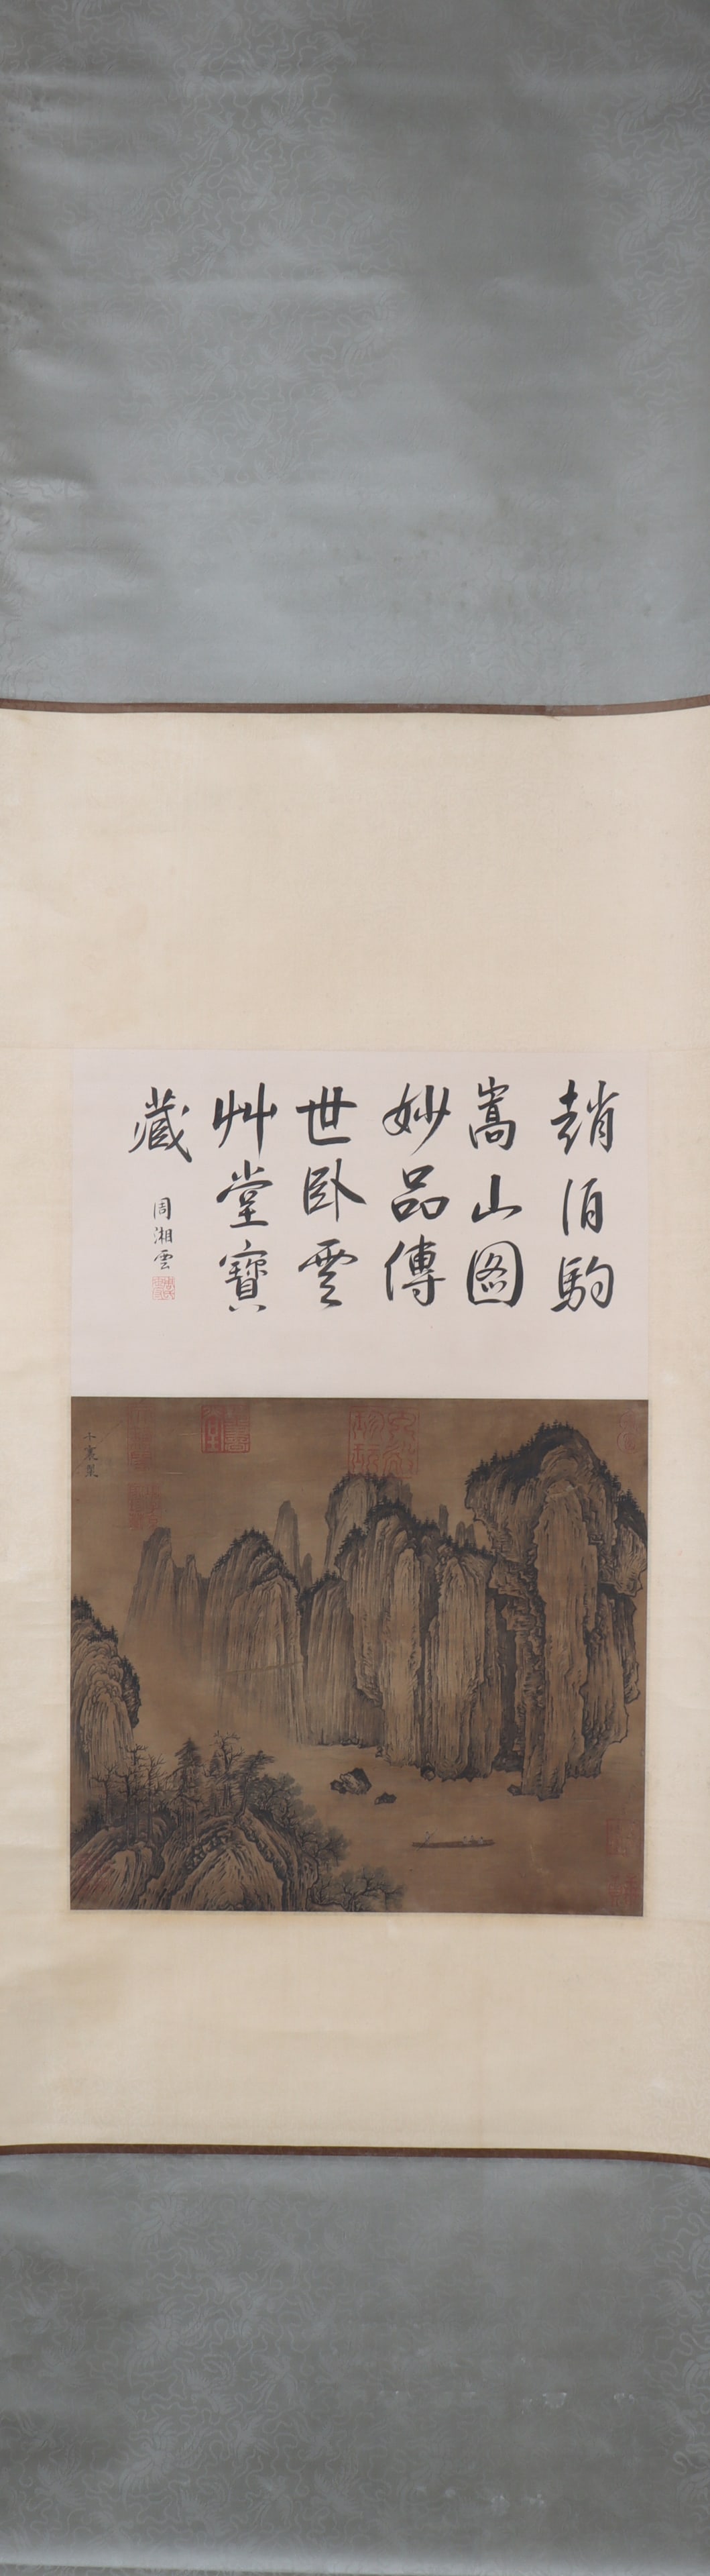 趙伯駒
嵩山图
妙品傳
世卧雲
艸堂寶
藏
周湘雲
千裏筆